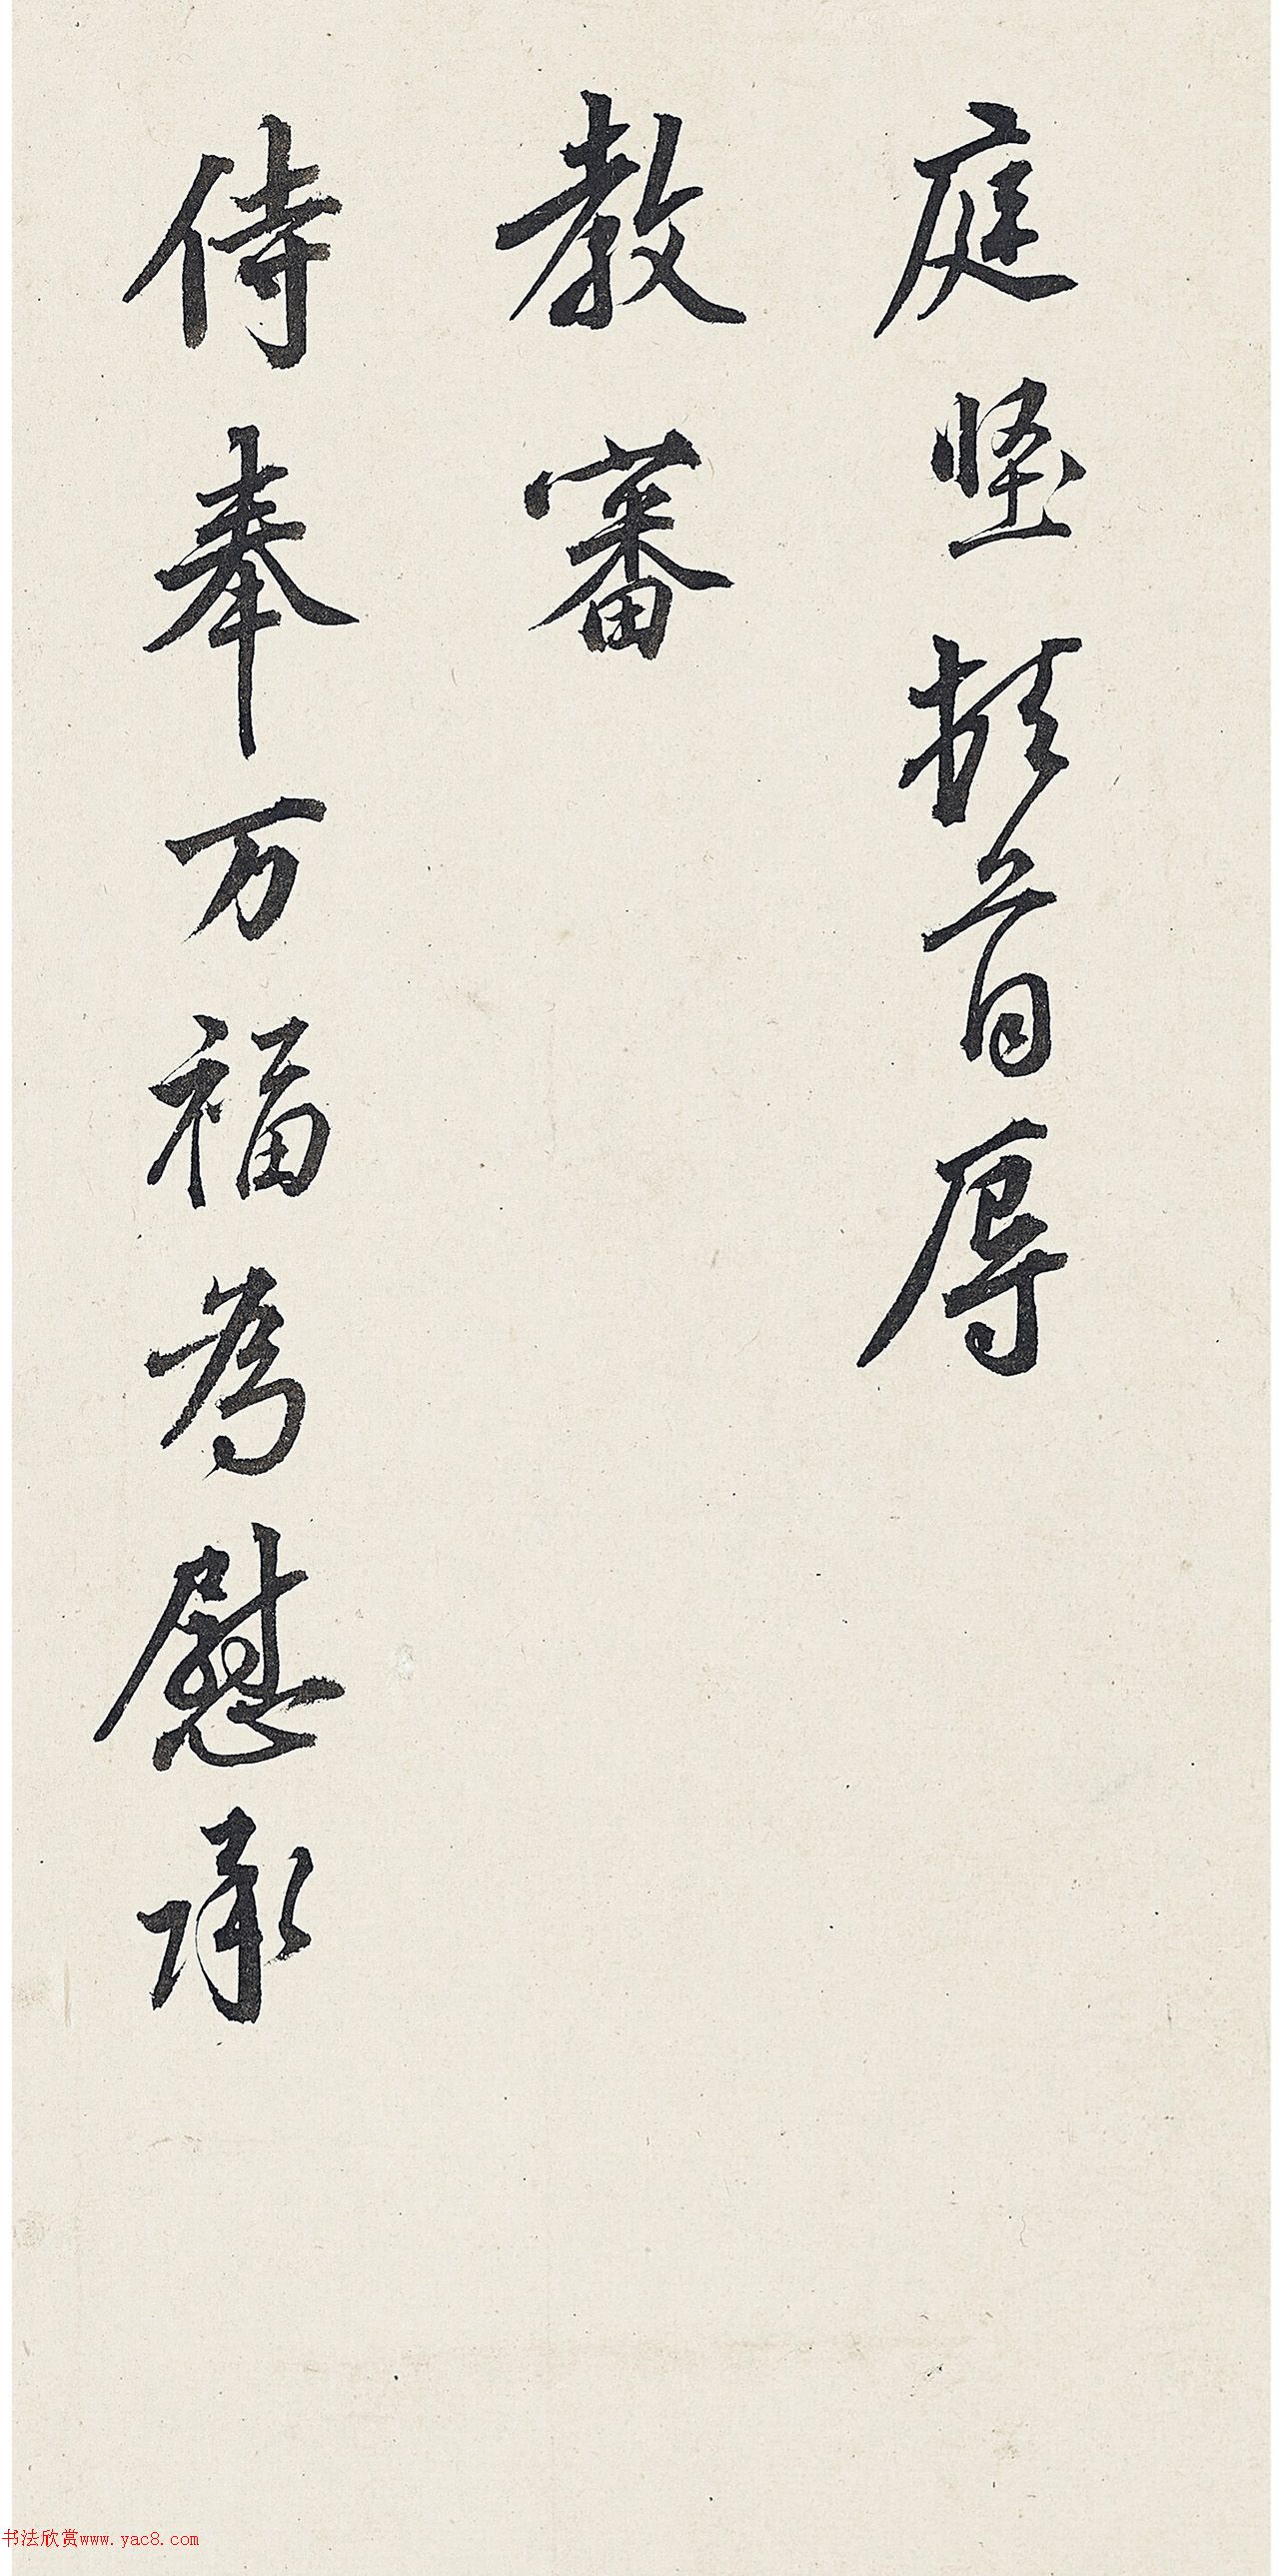 庭堅頓首辱
教審
侍奉万福為慰承
书法欣赏www.yac8.com